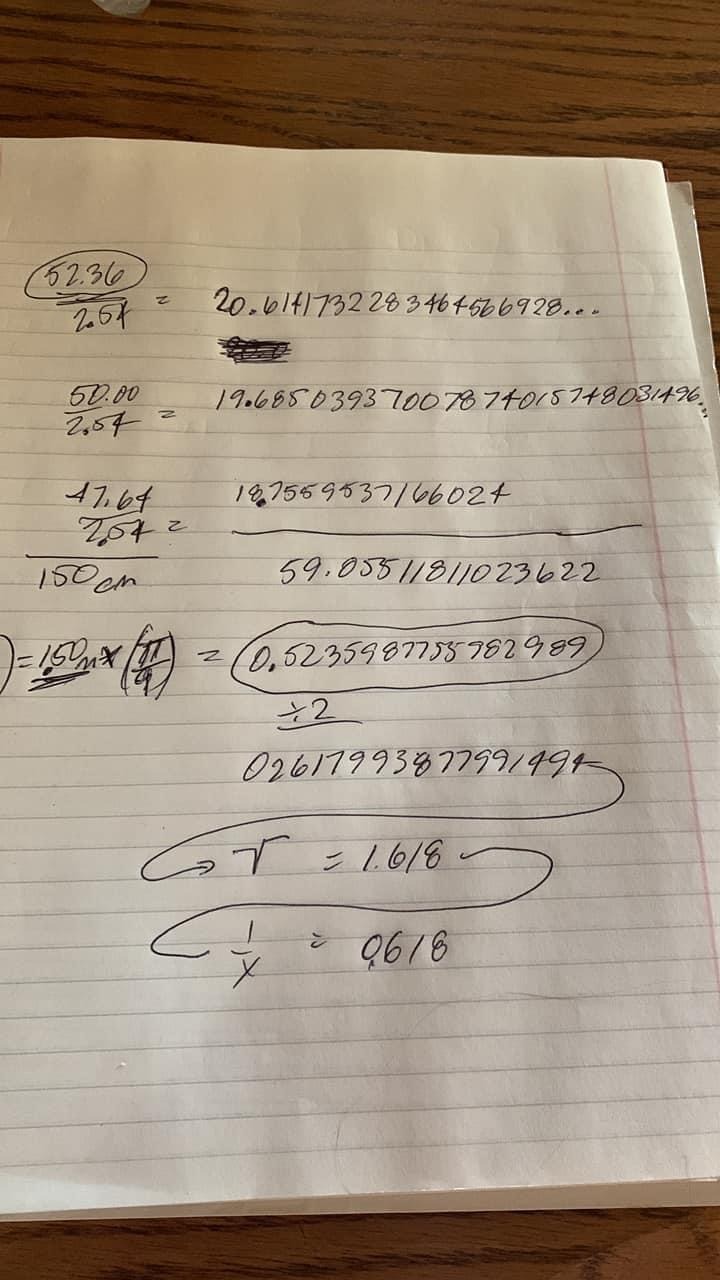 52.36
2.54 = 20.6141732283464566928...
50.00
2.54 = 19.68503937007874015748031496...
47.64
2.54 = 18.7559537166024
150 cm 59.05511811023622
) = 1.50 m × (π/9) = 0.5235987755982989
÷2
0261799387799149
= 1.618
1
x = 0.618